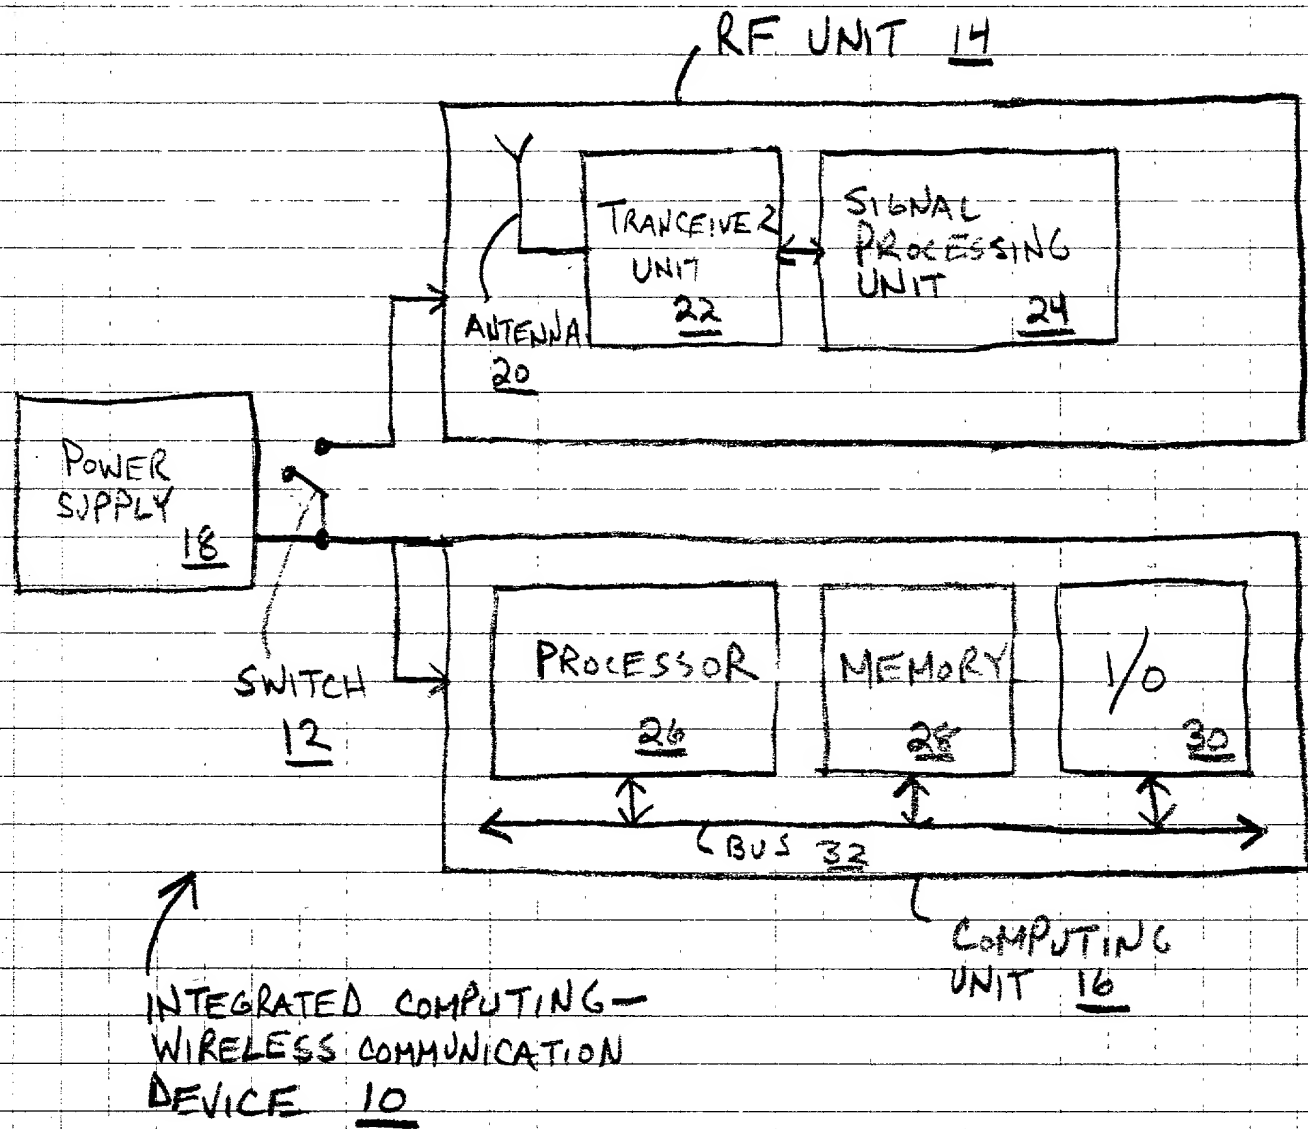 RF UNIT 14
TRANCEIVER
UNIT
22
SIGNAL
PROCESSING
UNIT
24
ANTENNA
20
POWER
SUPPLY
18
SWITCH
12
PROCESSOR
26
MEMORY
28
I/O
30
BUS 32
COMPUTING
UNIT 16
INTEGRATED COMPUTING-
WIRELESS COMMUNICATION
DEVICE 10